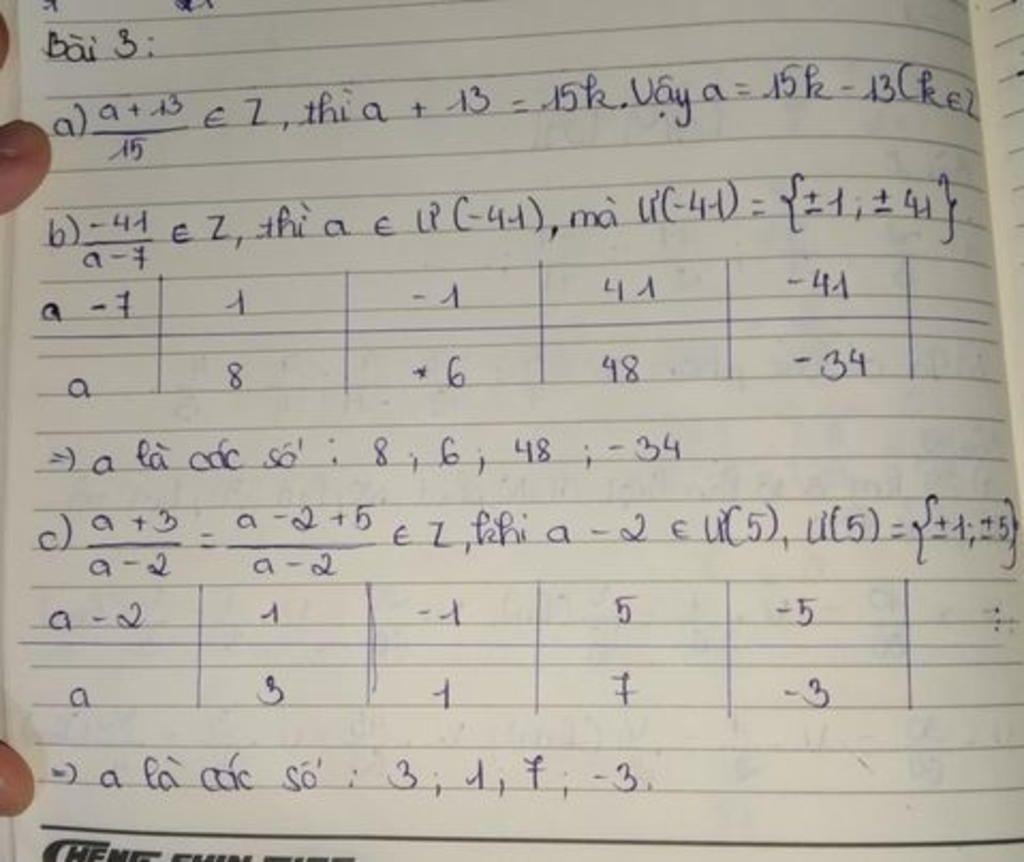 Bài 3:
a) \frac{a+13}{15} ∈ Z, thì a + 13 = 15k. Vậy a = 15k - 13 (k ∈ Z
b) \frac{-41}{a-7} ∈ Z, thì a ∈ Ư(-41), mà Ư(-41) = {±1; ±41}
a - 7 | 1 | -1 | 41 | -41
a | 8 | 6 | 48 | -34
=> a là các số: 8; 6; 48; -34
c) \frac{a+3}{a-2} = \frac{a-2+5}{a-2} ∈ Z, khi a - 2 ∈ Ư(5), Ư(5) = {±1; ±5}
a - 2 | 1 | -1 | 5 | -5
a | 3 | 1 | 7 | -3
=> a là các số: 3; 1; 7; -3.